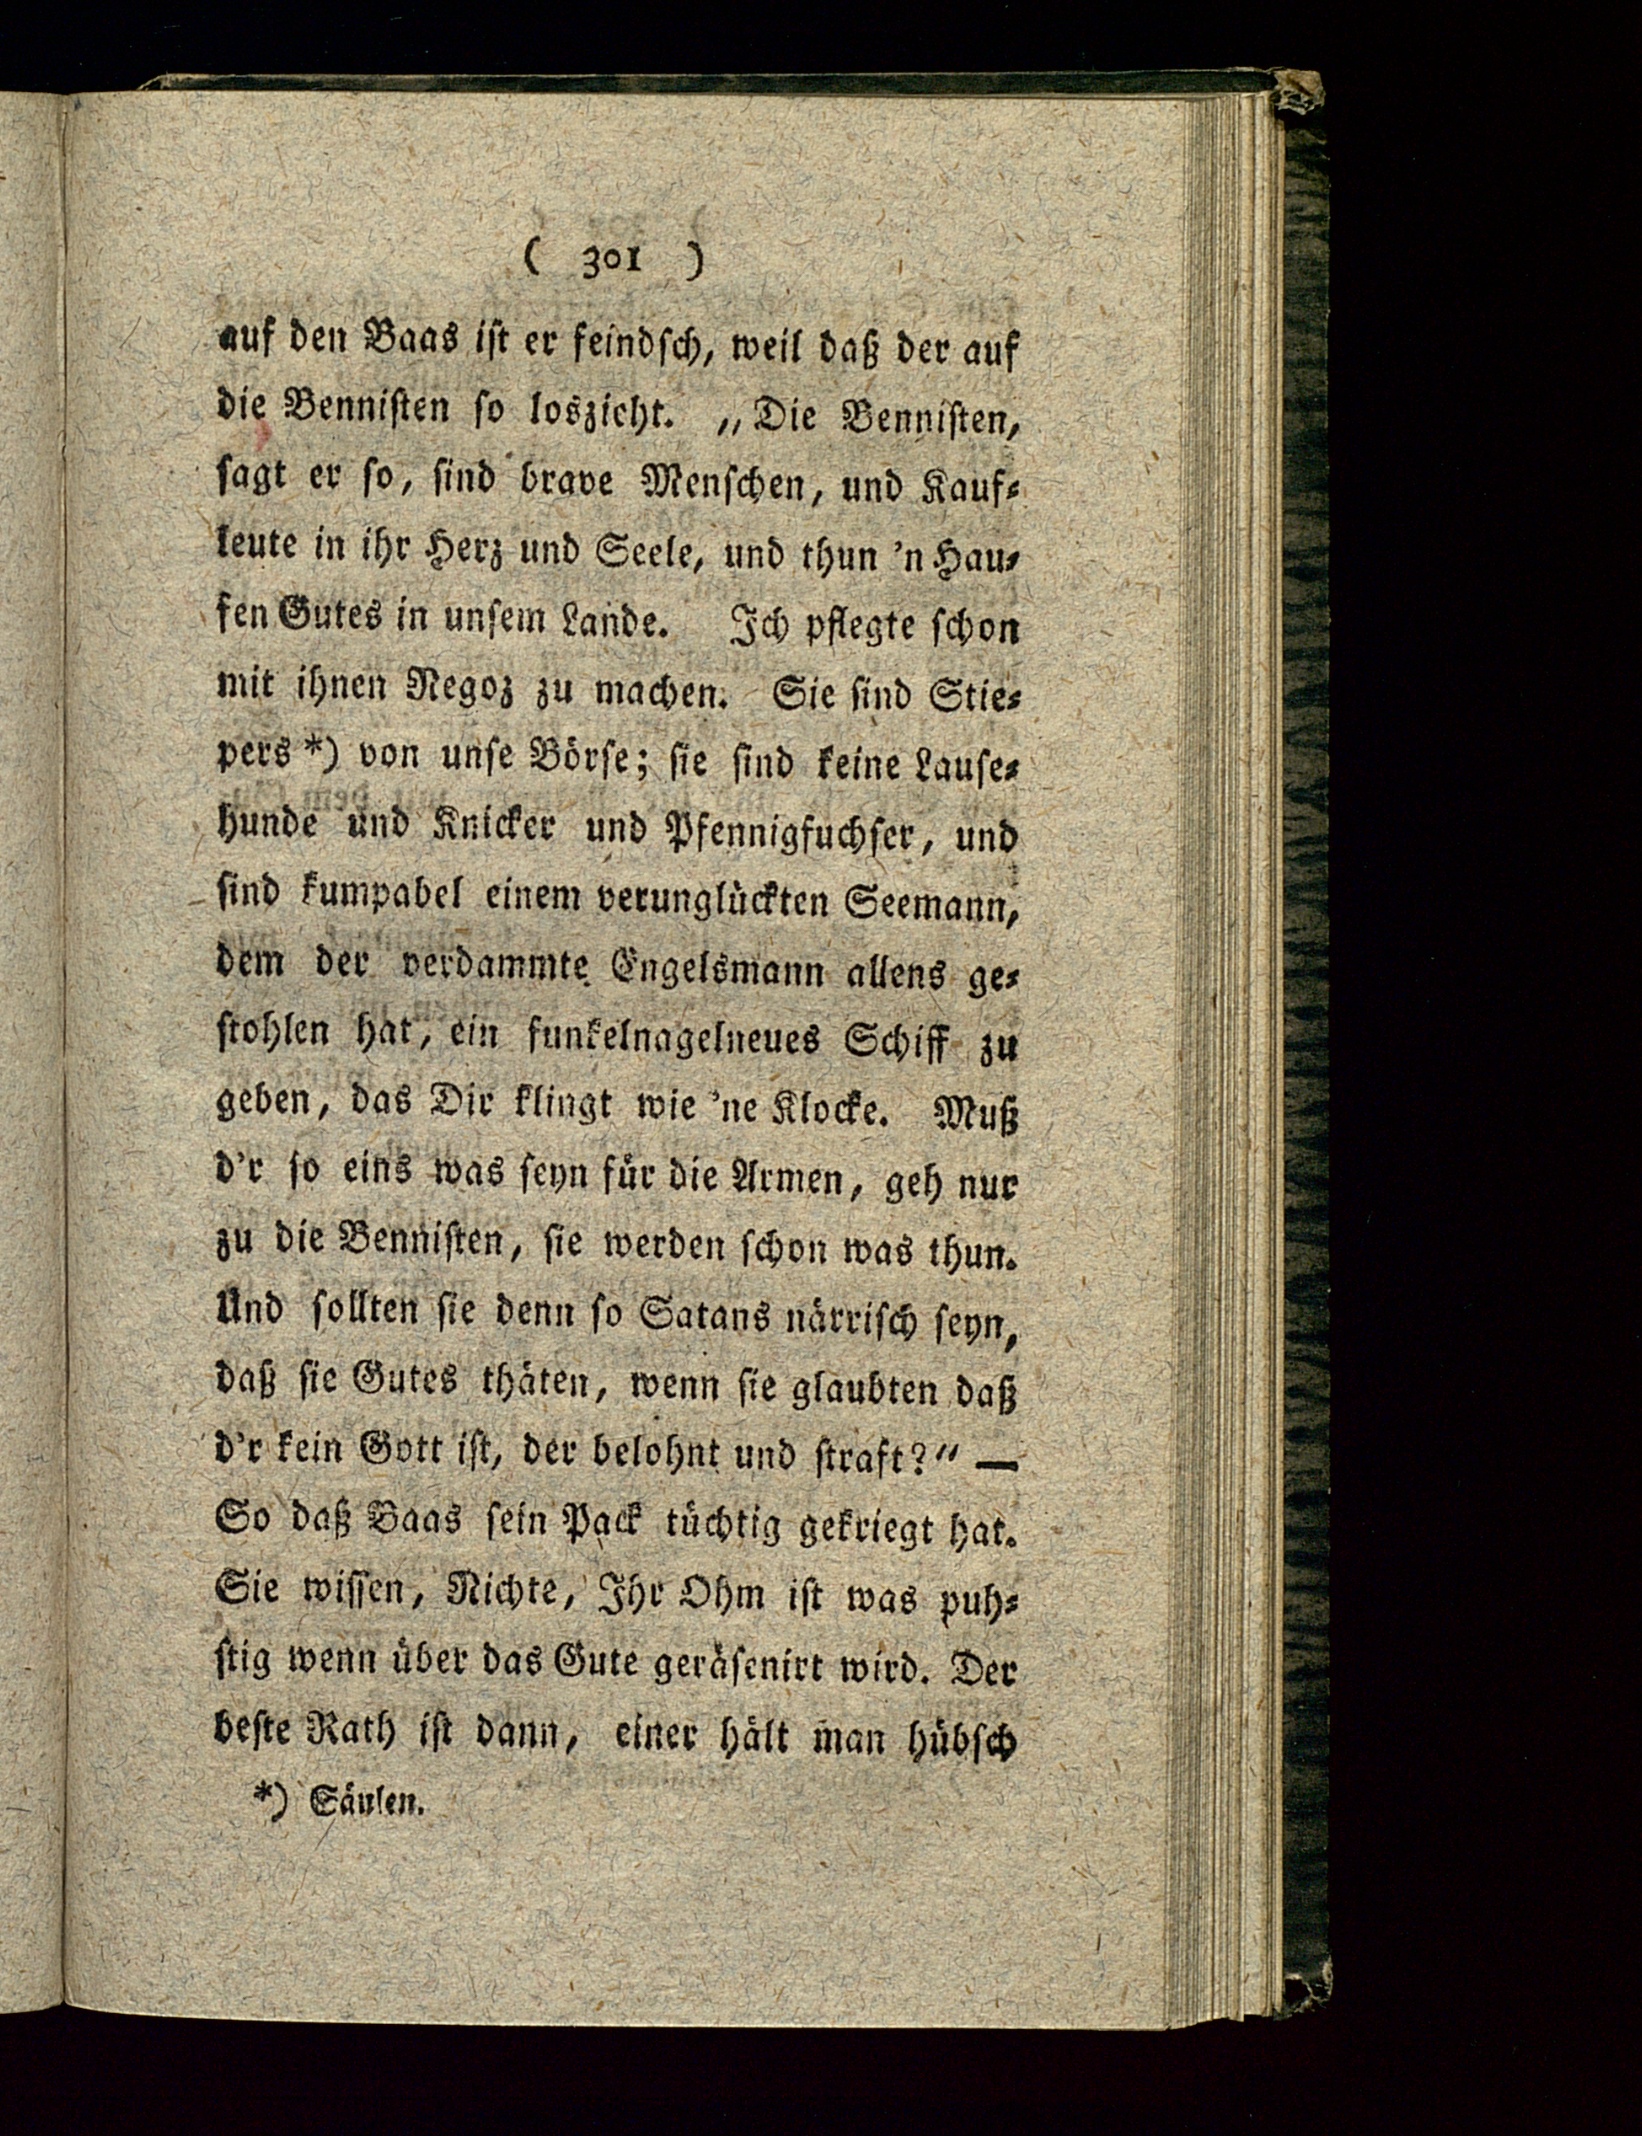 ( 301 )
auf den Baas ist er feindsch, weil daß der auf
die Bennisten so loszieht. „Die Bennisten,
sagt er so, sind brave Menschen, und Kauf-
leute in ihr Herz und Seele, und thun 'n Hau-
fen Gutes in unsem Lande. Ich pflegte schon
mit ihnen Negoz zu machen. Sie sind Stie-
pers *) von unse Börse; sie sind keine Lause-
hunde und Knicker und Pfennigfuchser, und
sind kumpabel einem verunglückten Seemann,
dem der verdammte Engelsmann allens ge-
stohlen hat, ein funkelnagelneues Schiff zu
geben, das Dir klingt wie 'ne Klocke. Muß
d'r so eins was seyn für die Armen, geh nur
zu die Bennisten, sie werden schon was thun.
Und sollten sie denn so Satans närrisch seyn,
daß sie Gutes thäten, wenn sie glaubten daß
d'r kein Gott ist, der belohnt und straft?“ —
So daß Baas sein Pack tüchtig gekriegt hat.
Sie wissen, Nichte, Ihr Ohm ist was puh-
stig wenn über das Gute geräsenirt wird. Der
beste Rath ist dann, einer hält man hübsch
*) Säulen.